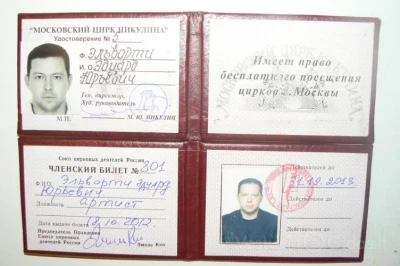 "МОСКОВСКИЙ ЦИРК НИКУЛИНА"
Удостоверение № 5
Ф. Эльворти
И.О. Эдуард
Юрьевич
Ген. директор,
Худ. руководитель
М.П.
М. Ю. НИКУЛИН
Имеет право
бесплатного посещения
цирков г. Москвы
Союз цирковых деятелей России
ЧЛЕНСКИЙ БИЛЕТ № 801
ФИО Эльворти Эдуард
Юрьевич
Должность артист
Дата выдачи билета 18.10.2012
Председатель Правления
Союза цирковых
деятелей России
Действителен до
31.12.2013
Действителен до